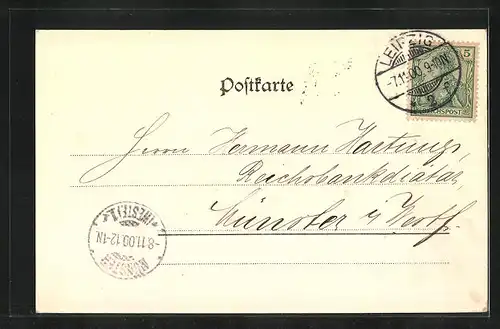 Postkarte
LEIPZIG
-7.11.00. 9-10N.
2
5
REICHSPOST
Herrn Hermann Hartung,
Reichsbankdiätar
Münster i/Westf.
MÜNSTER
-8.11.00.12-1N.
(WESTF.) 1